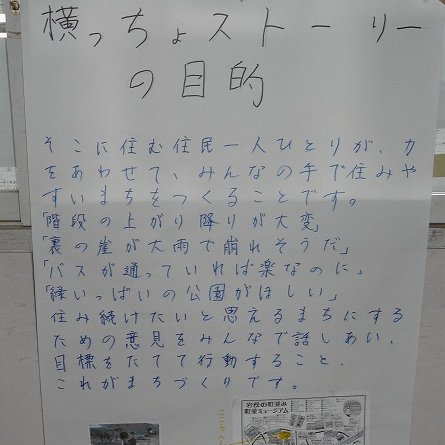 横っちょストーリー
の目的
そこに住む住民一人ひとりが、力
をあわせて、みんなの手で住みや
すいまちをつくることです。
「階段の上がり降りが大変」
「裏の崖が大雨で崩れそうだ」
「バスが通っていれば楽なのに、
「緑いっぱいの公園がほしい」
住み続けたいと思えるまちにする
ための意見をみんなで話しあい、
目標をたてて行動すること、
これがまちづくりです。
町並ミュージアム